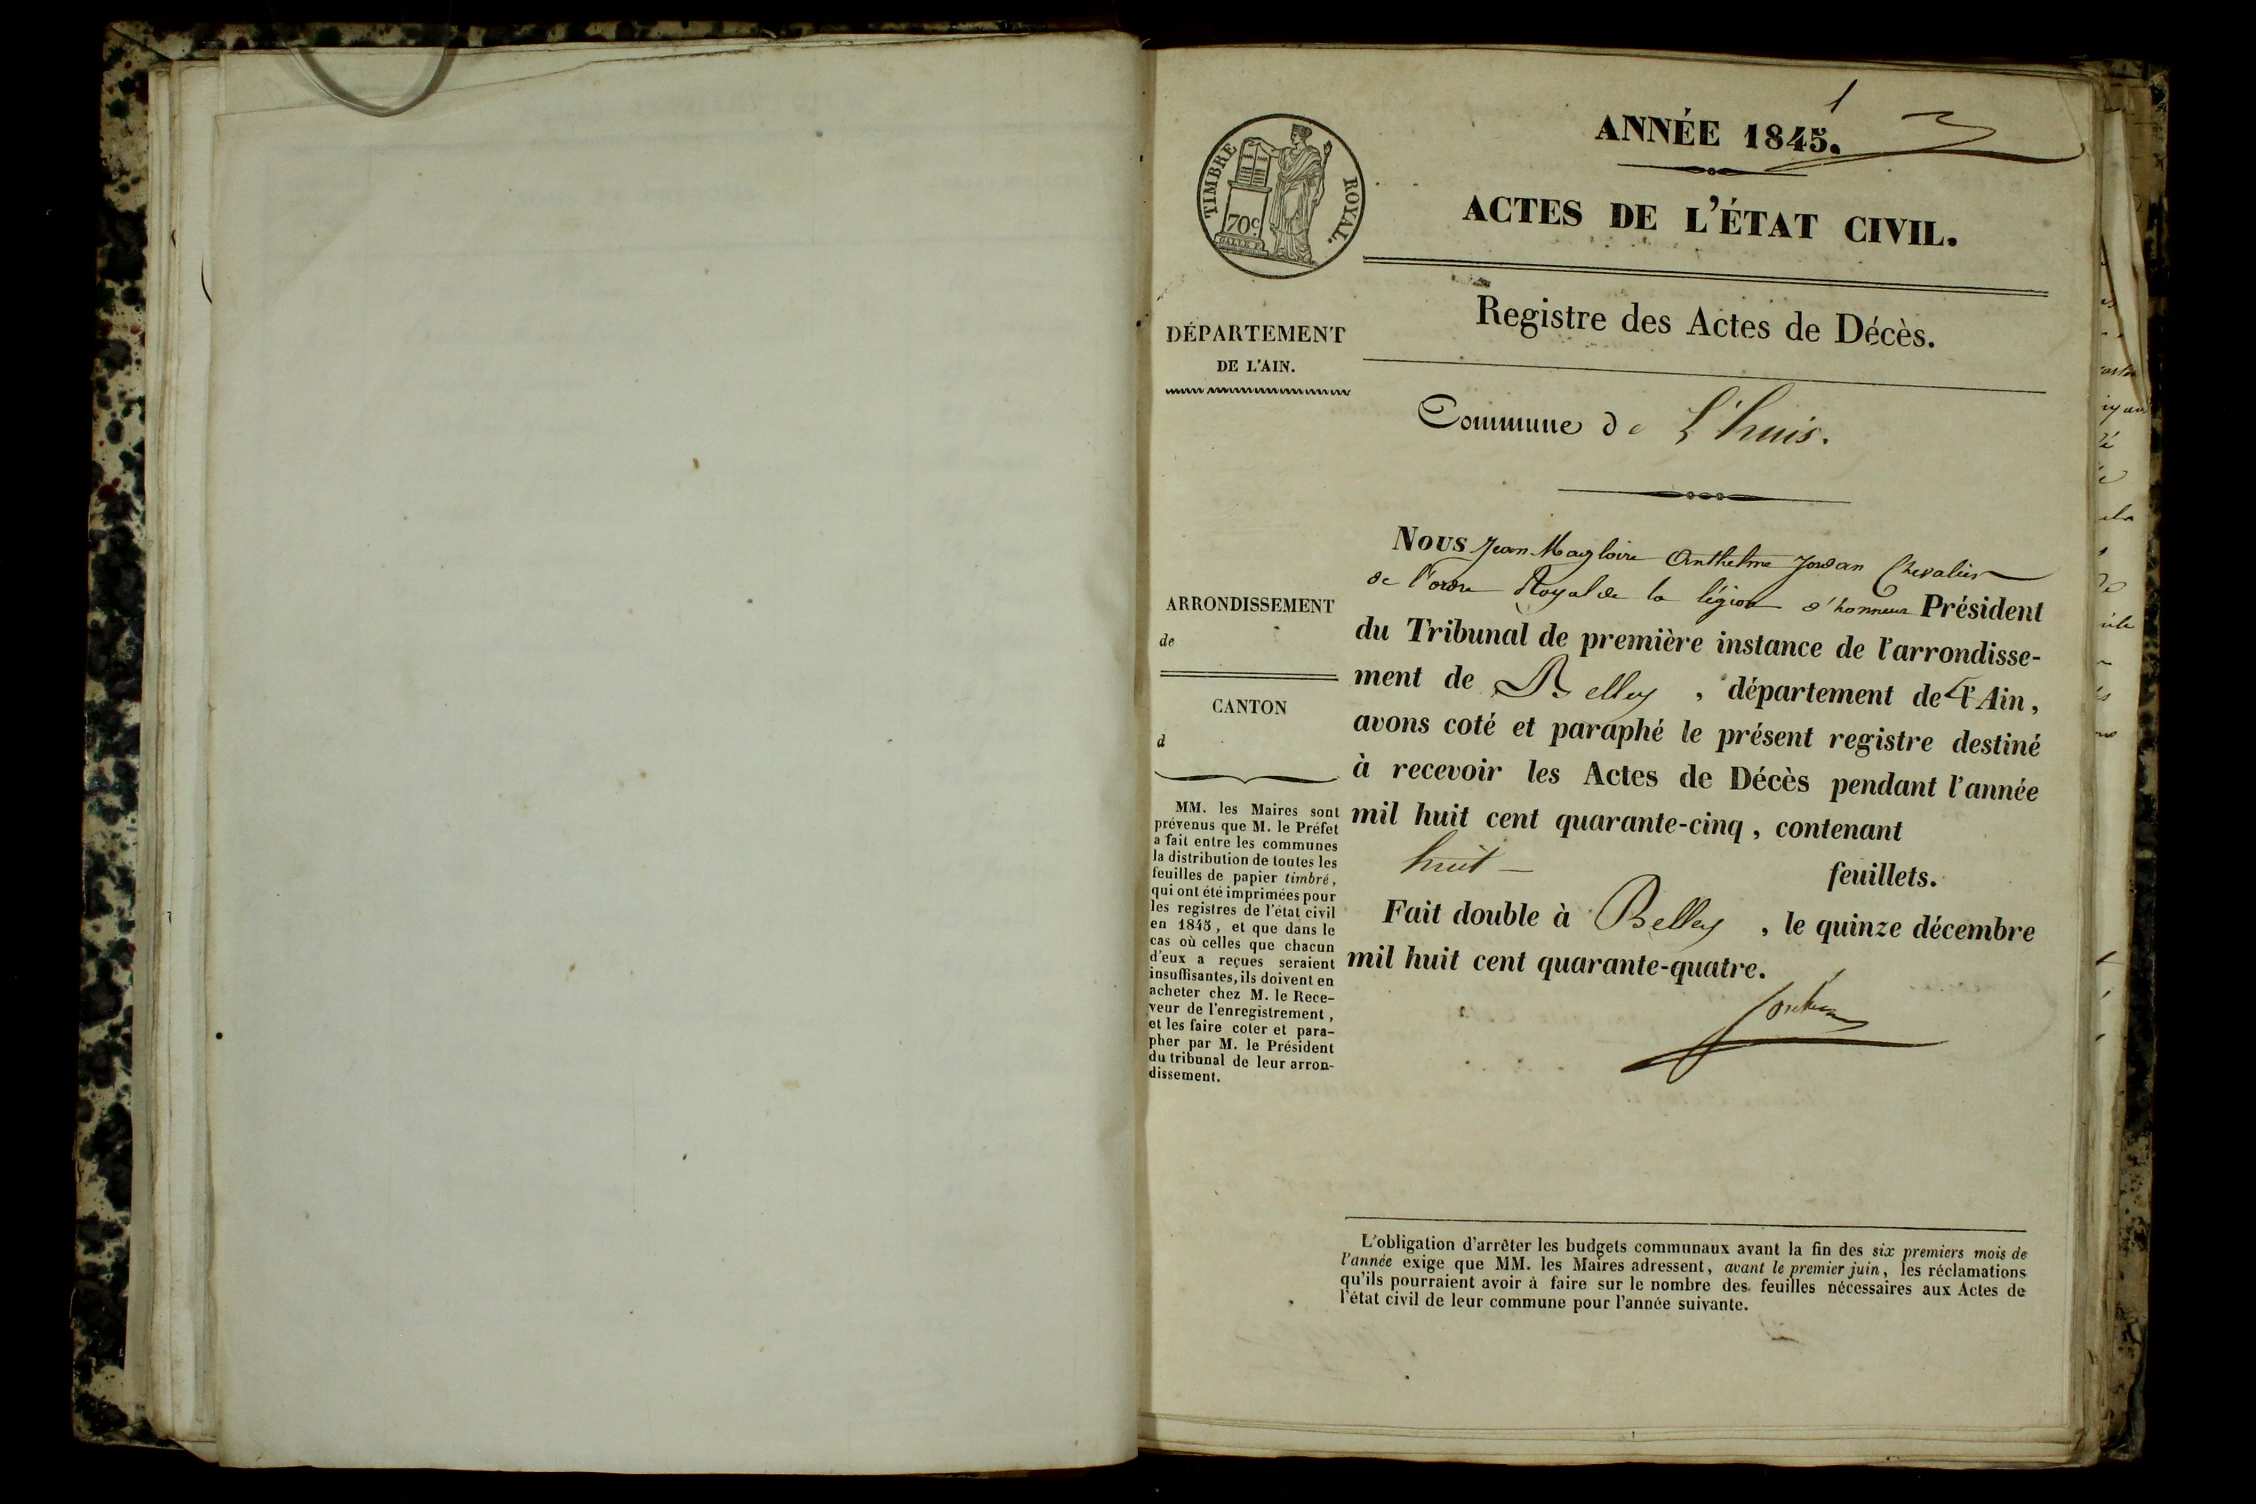 1
ANNÉE 1845.
TIMBRE ROYAL.
70c.
ACTES DE L'ÉTAT CIVIL.
Registre des Actes de Décès.
DÉPARTEMENT
DE L'AIN.
Commune de L'huis.
ARRONDISSEMENT
de
CANTON
d
MM. les Maires sont
prévenus que M. le Préfet
a fait entre les communes
la distribution de toutes les
feuilles de papier timbré,
qui ont été imprimées pour
les registres de l'état civil
en 1845, et que dans le
cas où celles que chacun
d'eux a reçues seraient
insuffisantes, ils doivent en
acheter chez M. le Rece-
veur de l'enregistrement,
et les faire coter et para-
pher par M. le Président
du tribunal de leur arron-
dissement.
Nous Jean Magloire Anthelme Jordan Chevalier
de l'ordre Royal de la légion d'honneur Président
du Tribunal de première instance de l'arrondisse-
ment de Belley, département de l'Ain,
avons coté et paraphé le présent registre destiné
à recevoir les Actes de Décès pendant l'année
mil huit cent quarante-cinq, contenant
huit feuillets.
Fait double à Belley, le quinze décembre
mil huit cent quarante-quatre.
Jordan
L'obligation d'arrêter les budgets communaux avant la fin des six premiers mois de
l'année exige que MM. les Maires adressent, avant le premier juin, les réclamations
qu'ils pourraient avoir à faire sur le nombre des feuilles nécessaires aux Actes de
l'état civil de leur commune pour l'année suivante.